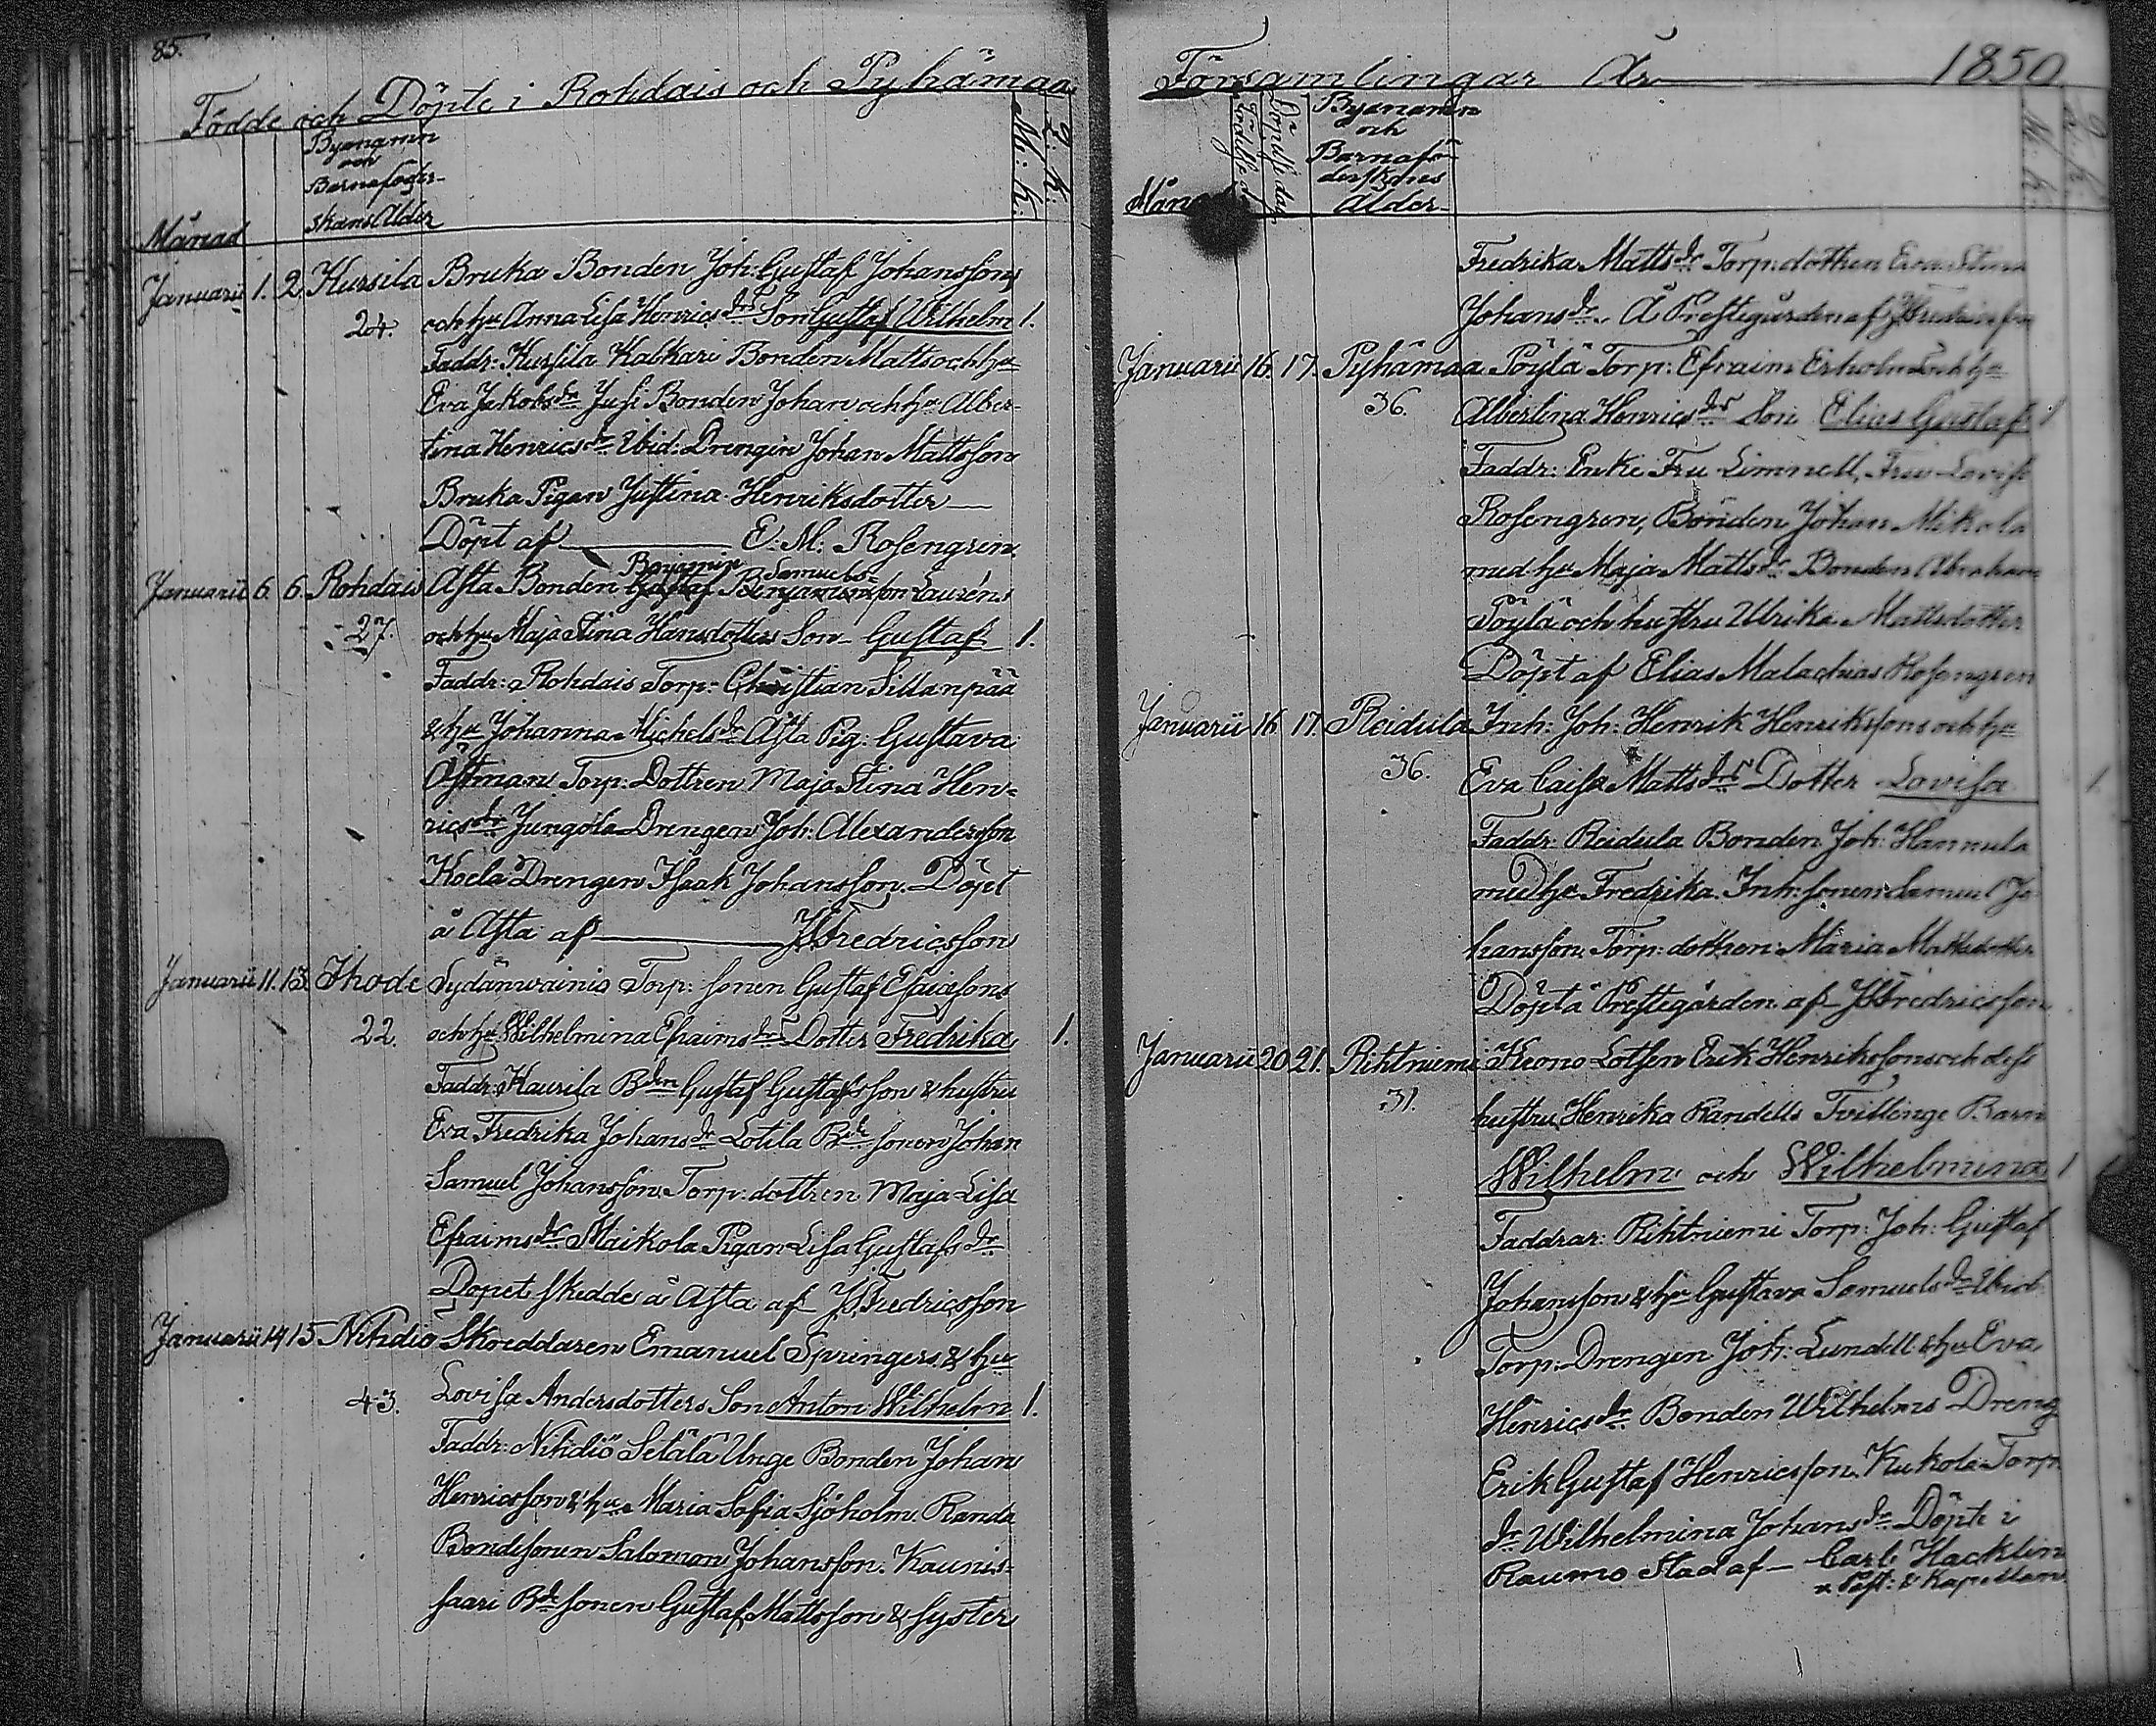 85.
Födde och Döpte i Rohdais och Pyhämaa
Månad
Byanamn
och
Barnaföder-
skans Ålder
M. k.
Q. k.
Januarii 1. 2. Kursila Bruka Bonden Joh: Gustaf Johanssons
24. och hu Anna Lisa Henricsdrs Son Gustaf Wilhelm 1.
Faddr: Kursila Kalkari Bonden Matts och hu
Eva Jakobsdr Jusi Bonden Johan och hu Alber-
tina Henricsdr Ibid: Drengen Johan Mattsson
Bruka Pigan Justina Henriksdotter
Döpt af E. M. Rosengren
Januarii 6. 6. Rohdais Asta Bonden Gustaf Benjamin Benjaminsson Samuels- Lauréns
27. och hu Maja Stina Hansdotters Son Gustaf 1.
Faddr: Rohdais Torp: Christian Sillanpää
& hu Johanna Michelsdr Asta Pig: Gustava
Östman Torp: Dottren Maja Stina Hen-
ricsdr Jungola Drengen Joh: Alexandersson
Koela Drengen Isaak Johansson. Döpt
å Asta af JFredricsson
Januarii 11. 13. Ihode Sydänwainio Torp: sonen Gustaf Esaiassons
22. och hu Wilhelmina Efraimsdrs Dotter Fredrika 1.
Faddr: Kaurila Bden Gustaf Gustafsson & hustru
Eva Fredrika Johansdr Lotila Bde sonen Johan
Samuel Johansson Torp: dottren Maja Lisa
Efraimsdr Maikola Pigan Lisa Gustafsdr
Dopet skedde å Asta af JFredricsson
Januarii 14 15 Nihdiö Skreddaren Emanuel Springers & hu
43. Lovisa Andersdotters Son Anton Wilhelm 1.
Faddr: Nihdiö Setälä Unge Bonden Johan
Henricsson & hu Maria Sofia Sjöholm. Randa
Bondesonen Salomon Johansson. Kaunis-
saari Bde sonen Gustaf Mattsson & syster
Församlingar År 1850
Födelse d
Döpelse dag
Byanamn
och
Barnafö-
derskanes
Ålder
M. k.
Q. k.
Fredrika Mattsdr Torp: dottren Eva Stina
Johansdr. Å Prestegården af JFredricsson
Januarii 16. 17. Pyhämaa Pöylä Torp: Efraim Erholms och hu
36. Albertina Henricsdrs Son Elias Gustaf 1
Faddr: Enke Fru Limnell, Fru Lovise
Rosengren, Bonden Johan Mikola
med hu Maja Mattsdr Bonden Abraham
Pöylä och hustru Ulrika Mattsdotter
Döpt af Elias Malachias Rosengren
Januarii 16 17. Reidula Inh: Joh: Henrik Henrikssons och hu
36. Eva Caisa Mattsdrs Dotter Lovisa 1
Faddr: Reidula Bonden Joh: Hannula
med hu Fredrika. Inh: sonen Samuel Jo-
hansson Torp: dottren Maria Mattsdotter
Döpt å Prestegården af JFredricsson
Januarii 20 21. Rihtniemi Krono Lotsen Erik Henrikssons och dess
31. hustru Henrika Randells Tvillinge Barn
Wilhelm och Wilhelmina 1
Faddrar: Rihtniemi Torp: Joh: Gustaf
Johansson & hu Gustava Samuelsdr Ibid
Torp: Drengen Joh: Lundell & hu Eva
Henricsdr Bonden Wilhelms Dreng
Erik Gustaf Henricsson. Kukola Torp:
dr Wilhelmina Johansdr Döpte i
Raumo Stad af Carl Hacklin
v. Past: & Kapellan